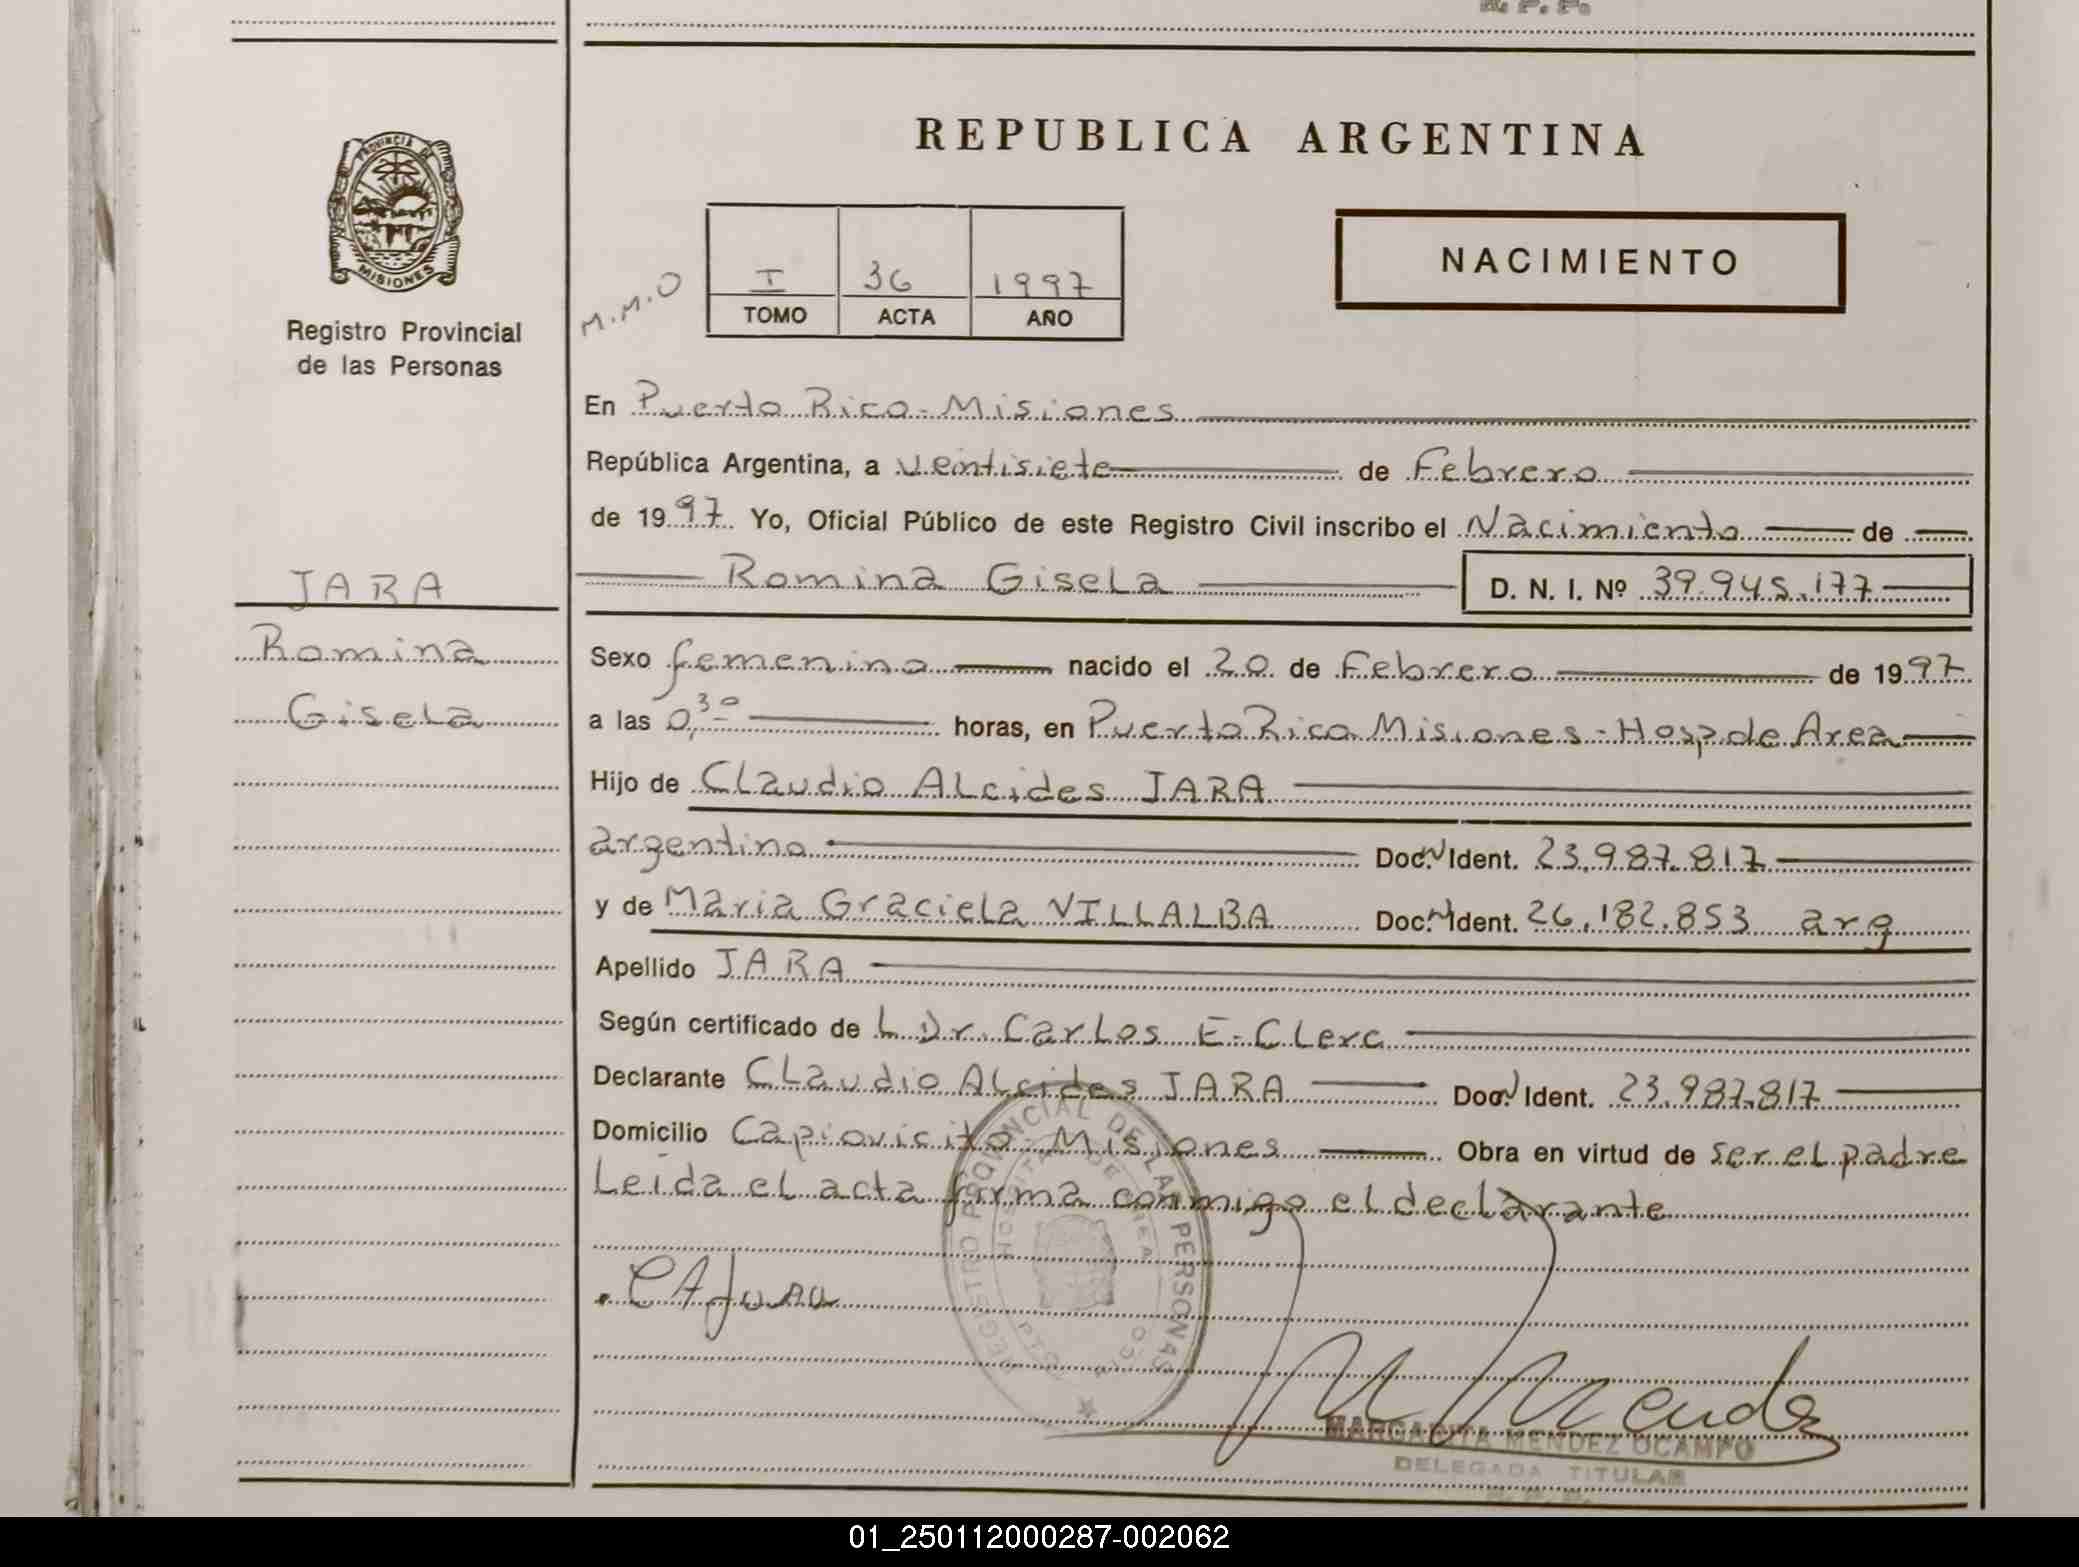 REPUBLICA ARGENTINA
PROVINCIA DE
MISIONES
Registro Provincial
de las Personas
M.M.O
I 36 1997
TOMO ACTA AÑO
NACIMIENTO
En Puerto Rico - Misiones
República Argentina, a ventisiete de Febrero
de 1997. Yo, Oficial Público de este Registro Civil inscribo el Nacimiento de
Romina Gisela D. N. I. Nº 39.945.177
JARA
Romina
Gisela
Sexo femenino nacido el 20 de Febrero de 1997
a las 0,30 horas, en Puerto Rico Misiones - Hosp de Area
Hijo de Claudio Alcides JARA
argentino Doc. N Ident. 23.987.817
y de Maria Graciela VILLALBA Doc. N Ident. 26.182.853 arg
Apellido JARA
Según certificado de L Dr. Carlos E. Clerc
Declarante Claudio Alcides JARA Doc. N Ident. 23.987.817
Domicilio Capiovicito - Misiones Obra en virtud de ser el padre
Leida el acta firma conmigo el declarante
REGISTRO PROVINCIAL DE LAS PERSONAS
HOSPITAL DE AREA
PTO RICO
CAJara
M Mendez
MARGARITA MENDEZ OCAMPO
DELEGADA TITULAR
R. P. P.
01_250112000287-002062